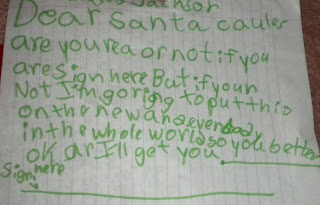 Dear Santa cauler
are you rea or not if you
are sign here But if your
Not I'm goring to put this
on the new and everbody
in the whole world so you better
OK ar I'll get you
sign here